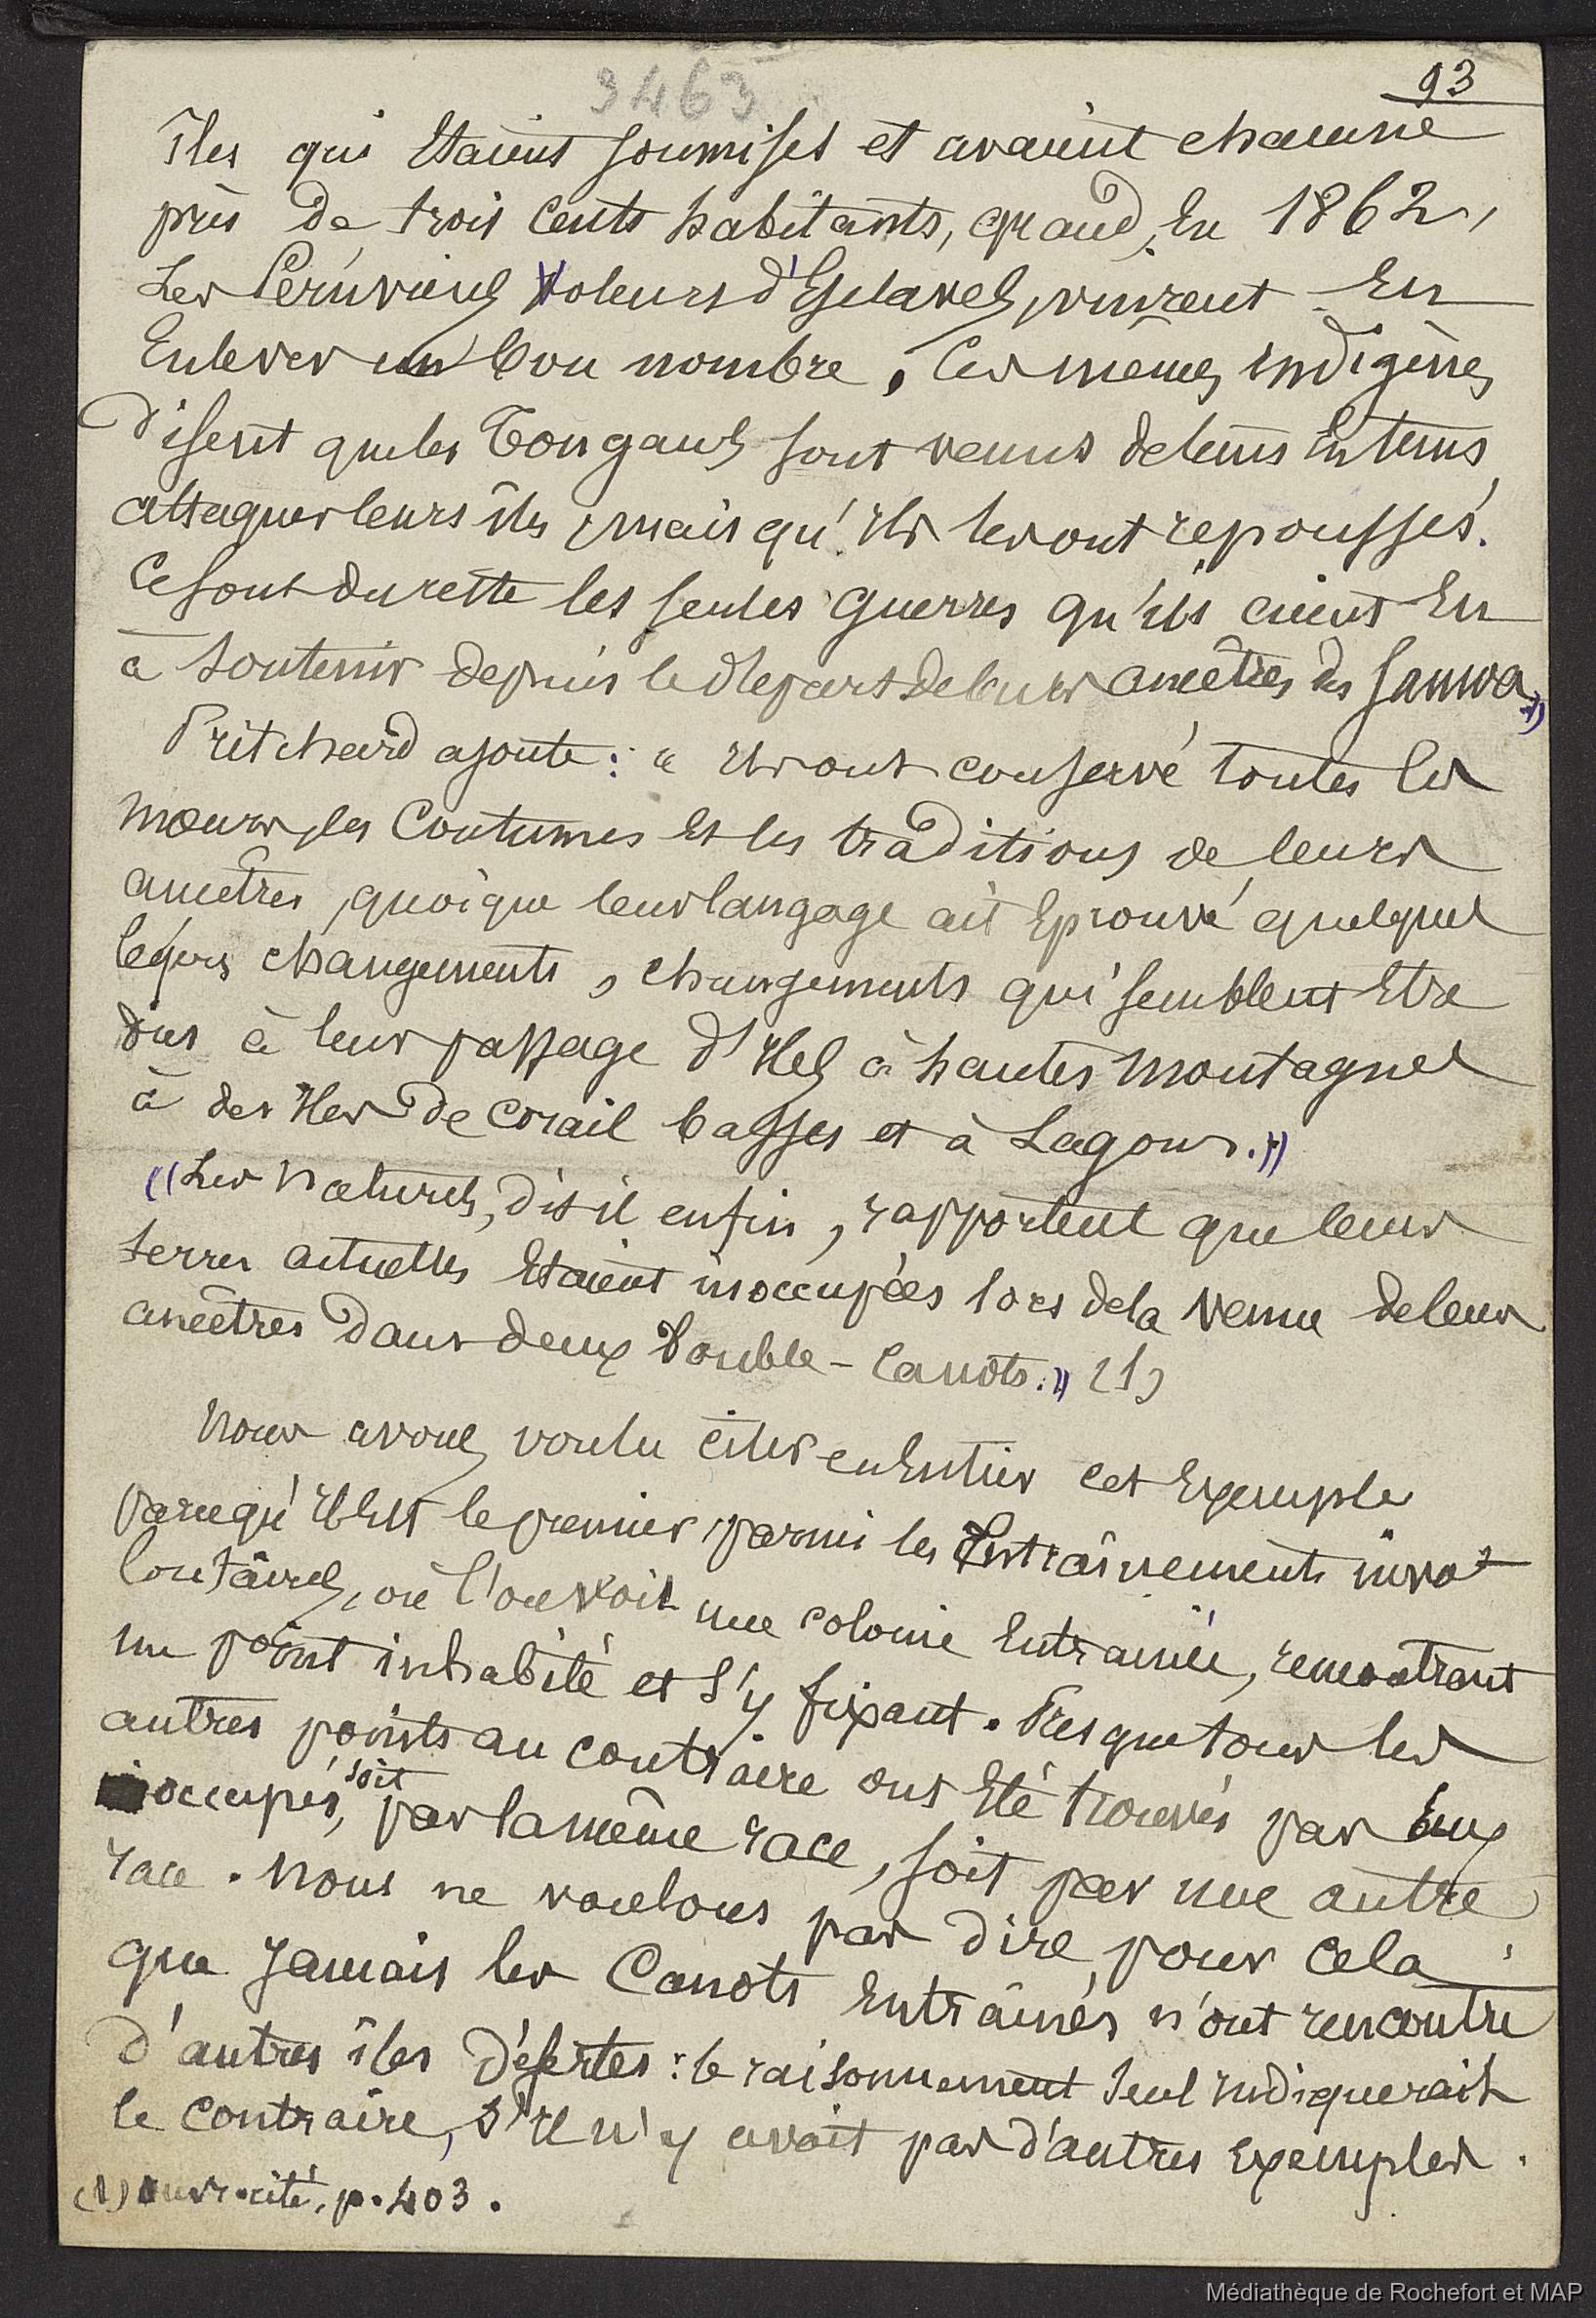 3463
93
îles qui étaient soumises et avaient chacune
près de trois cents habitants, quand, en 1862,
les Péruviens voleurs d'Esclaves, vinrent en
enlever un bon nombre. Ces mêmes indigènes
disent que les Tongans sont venus de tems en tems
attaquer leurs îles, mais qu'ils les ont repoussés.
Ce sont du reste les seules guerres qu'ils aient eu
à soutenir depuis le départ de leurs ancêtres des Samoa.»
Pritchard ajoute: « Ils ont conservé toutes les
mœurs, les coutumes et les traditions de leurs
ancêtres, quoique leur langage ait éprouvé quelques
légers changements, changements qui semblent être
dus à leur passage d'îles à hautes montagnes
à des îles de corail basses et à Lagons.»
«Les naturels, dit-il enfin, rapportent que leurs
terres actuelles étaient inoccupées lors de la venue de leurs
ancêtres dans deux Double-Canots.» (1)
Nous avons voulu citer en entier cet exemple
parcequ'il est le premier, parmi les Entraînements invo-
lontaires, où l'on voit une colonie entrainée, rencontrant
un point inhabité et s'y fixant. Presque tous les
autres points au contraire ont été trouvés par eux
occupés, soit par la même race, soit par une autre
race. Nous ne voulons pas dire, pour cela,
que jamais les Canots entraînés n'ont rencontré
d'autres îles désertes: le raisonnement seul indiquerait
le contraire, s'il n'y avait pas d'autres exemples.
(1) ouvr. cité, p. 403.
Médiathèque de Rochefort et MAP